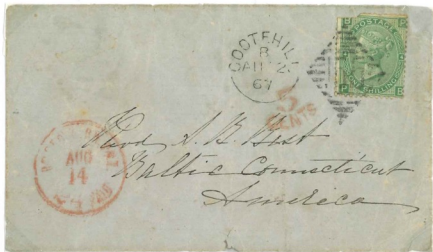 COOTEHILL
R
AU 2
67
POSTAGE
ONE SHILLING
5
CENTS
AUG
14
Baltic Connecticut
America